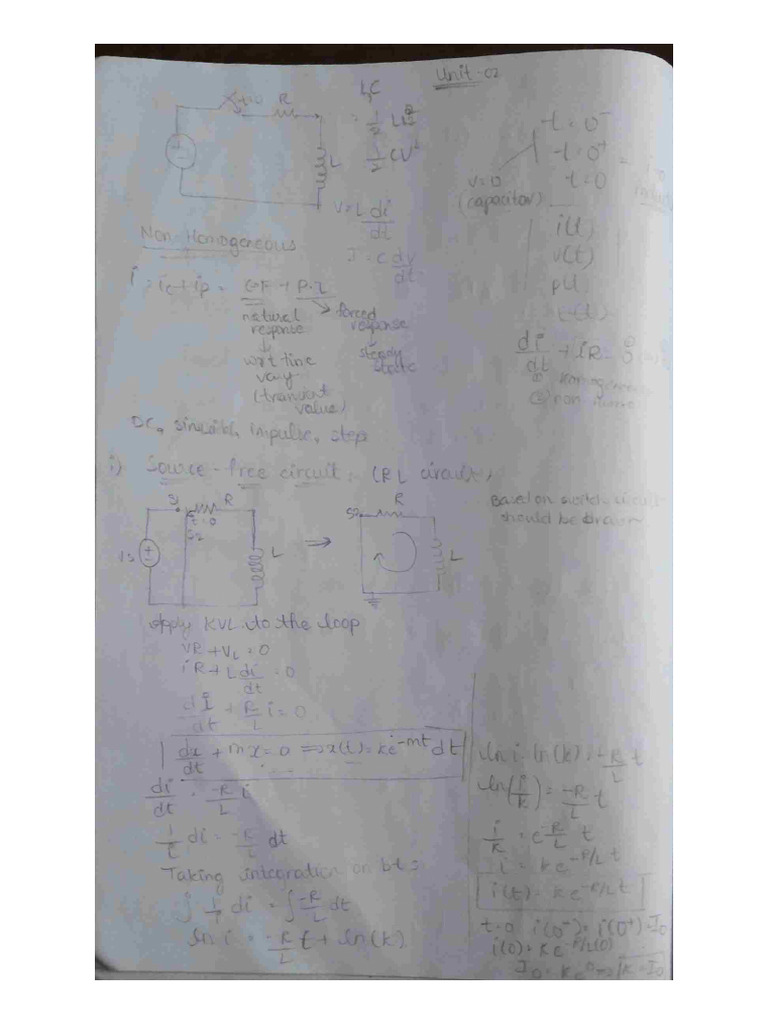 Unit-02
t=0 R
L
L, C
= 1/2 LI²
1/2 CV²
V = L di/dt
I = C dv/dt
t=0⁻
t=0⁺
t=0
V=0
(capacitor)
i(t)
v(t)
p(t)
Non-Homogeneous
i = ic+ip = C.F + P.I
natural response
forced response
wrt time vary
(transient value)
steady state
di/dt + iR = 0
homogeneous
② non
DC, sinusoidal, impulse, step
i) Source-free circuit, (RL circuit)
S1 R
t=0
S2
L
S2 R
L
Based on switch circuit
should be drawn
Apply KVL to the loop
VR+VL=0
iR+L di/dt = 0
di/dt + R/L i=0
dx/dt + mx=0 ⇒ x(t)=ke^-mt dt
di/dt = -R/L i
1/i di = -R/L dt
Taking integration on bt:
∫ 1/i di = ∫ -R/L dt
ln i = -R/L t + ln(k)
ln i - ln(k) = -R/L t
ln(i/k) = -R/L t
i/k = e^-R/L t
i = ke^-R/L t
i(t) = ke^-R/L t
t=0 i(0⁻)=i(0⁺)=I₀
i(0)=ke^-R/L(0)
I₀ = ke⁰ ⇒ k=I₀